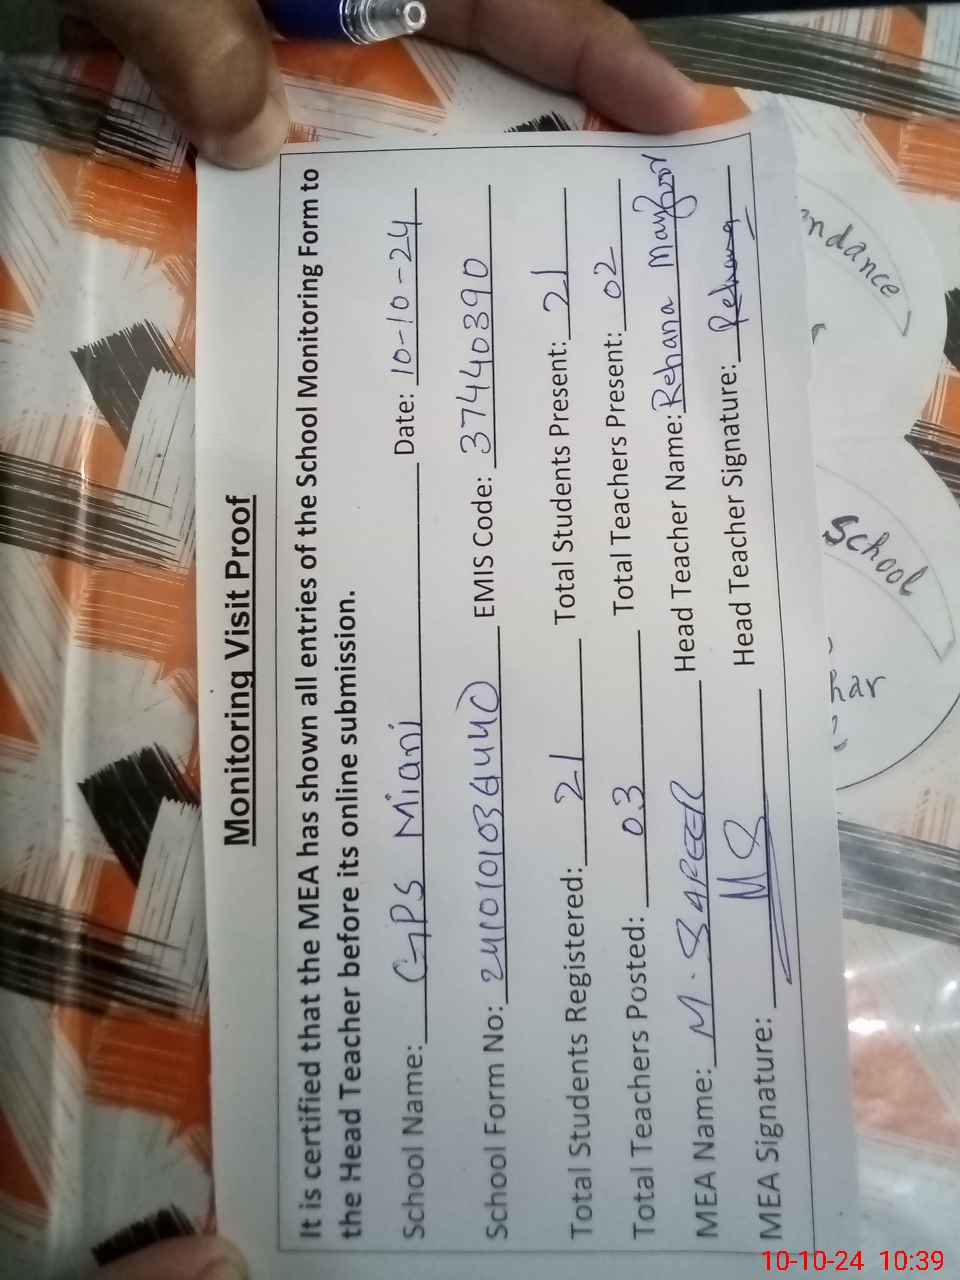 Monitoring Visit Proof
It is certified that the MEA has shown all entries of the School Monitoring Form to
the Head Teacher before its online submission.
School Name: GPS Miani Date: 10-10-24
School Form No: EMIS Code: 37440390
Total Students Registered: 21 Total Students Present: 21
Total Teachers Posted: 03 Total Teachers Present: 02
MEA Name: M. SAFEER Head Teacher Name: Rehana Manzoor
MEA Signature: MS Head Teacher Signature: Rehana
ndance
School
har
10-10-24 10:39